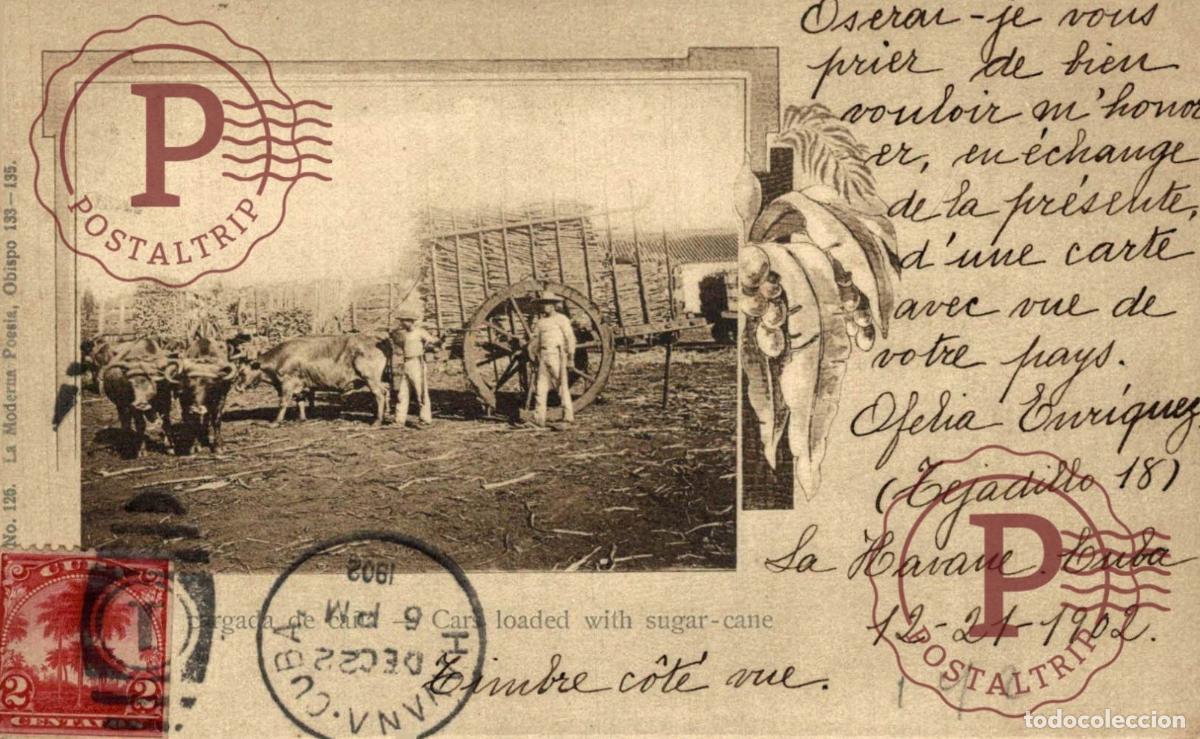 Oserai-je vous
prier de bien
vouloir m'honor
er, en échange
de la présente,
d'une carte
avec vue de
votre pays.
Ofelia Enríquez.
(Tejadillo 18)
La Havane. Cuba
12-21-1902.
Timbre côté vue.
No. 126. La Moderna Poesia, Obispo 133-135.
cargada de caña — Cars loaded with sugar-cane
CUBA
2 2
CENTAVOS
1
HABANA·CUBA
DEC 22
6 PM
1902
P
POSTALTRIP
P
POSTALTRIP
todocoleccion